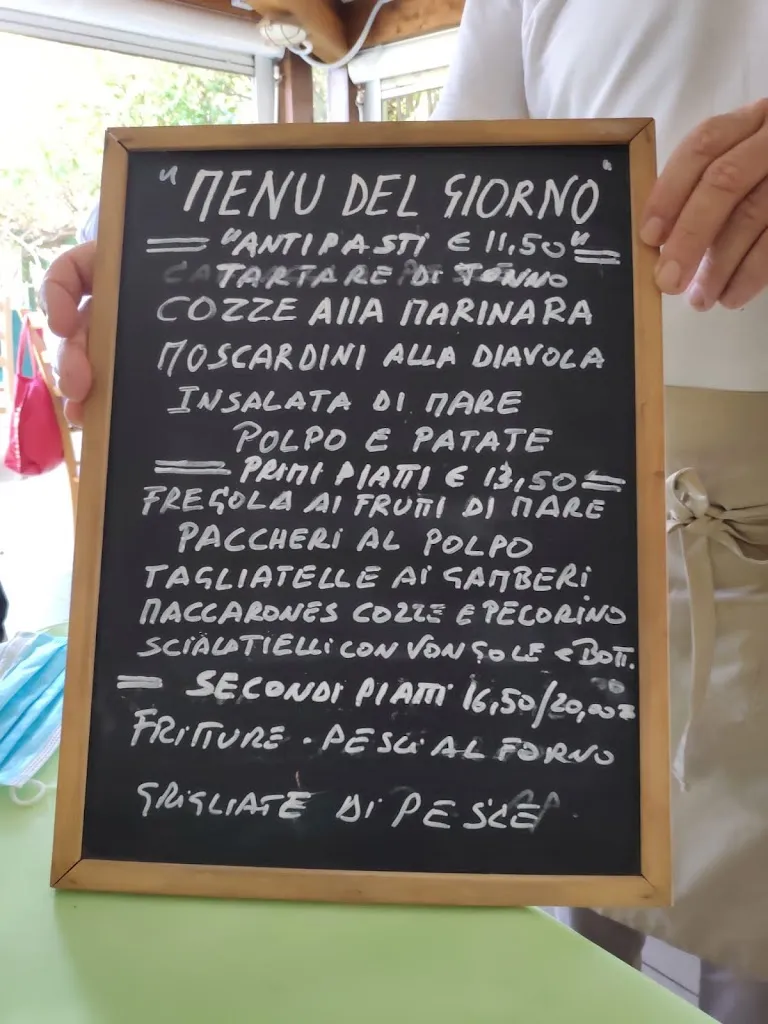 "MENU DEL GIORNO"
"ANTIPASTI € 11,50"
TARTARE DI TONNO
COZZE AllA MARINARA
MOSCARDINI ALLA DIAVOLA
INSALATA DI MARE
POLPO E PATATE
PRIMI PIATTI € 13,50
FREGOLA AI FRUTTI DI MARE
PACCHERI AL POLPO
TAGLIATELLE AI GAMBERI
MACCARONES COZZE E PECORINO
SCIALATIELLI CON VONGOLE E BOTT.
SECONDI PIATTI 16,50/20,00
FRITTURE - PESCI AL FORNO
GRIGLIATE DI PESCE